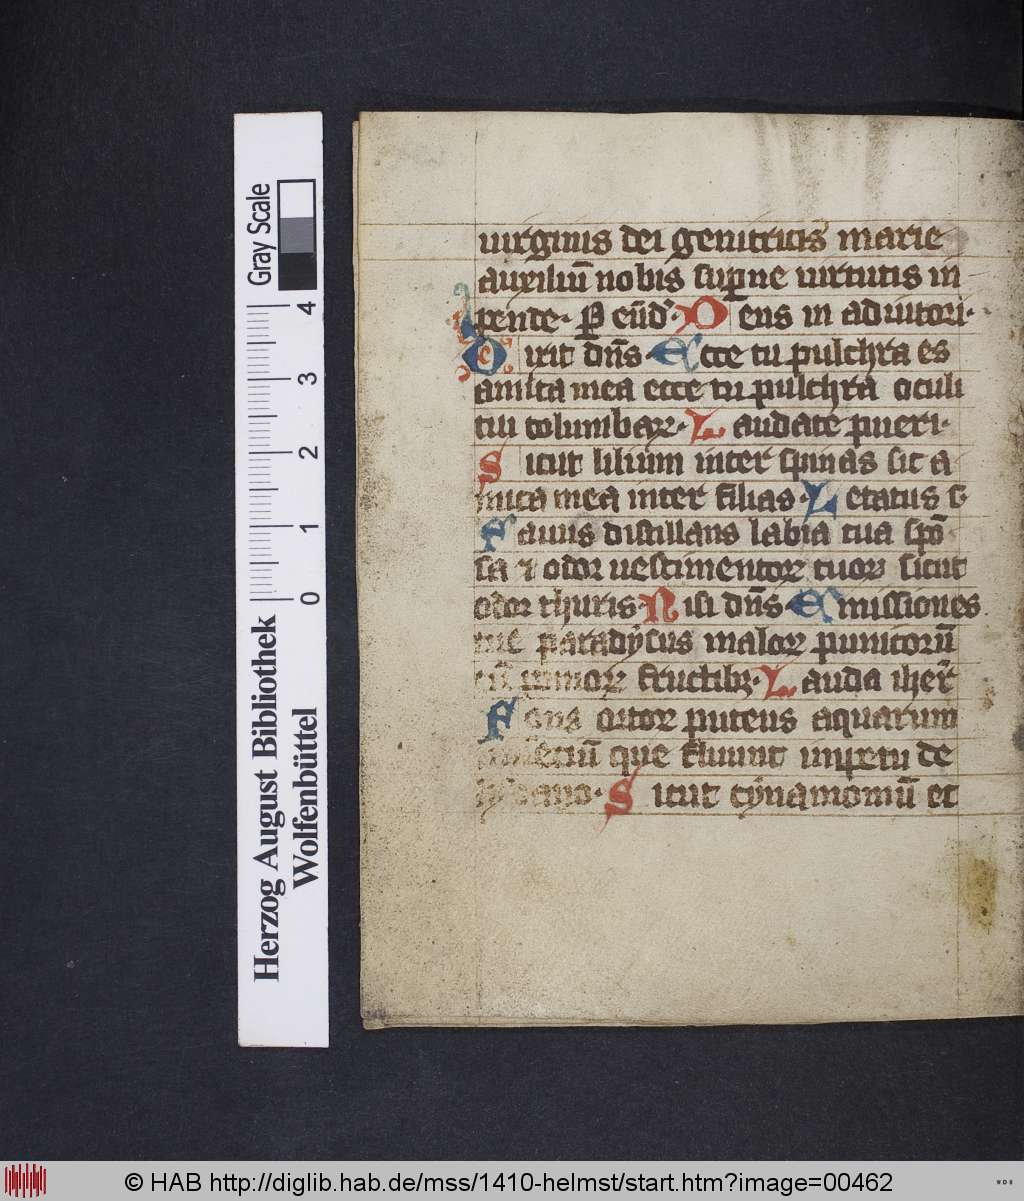 Gray Scale
4
3
2
1
0
Herzog August Bibliothek
Wolfenbüttel
uirginis dei genitricis marie
auxiliū nobis sup̱ne uirtutis in
pende. P̱ eūd'. Deus in adiutori.
Dixit dn̄s. Ecce tu pulchra es
amica mea ecce tu pulchra oculi
tui columbaꝝ. Laudate pueri.
Sicut lilium inter spinas sic a
mica mea inter filias. Letatus s
Fauus distillans labia tua spō
sa ⁊ odor uestimentoꝝ tuoꝝ sicut
odor thuris. Nisi dn̄s. Emissiones
tue paradysus maloꝝ punicorū
cū pomoꝝ fructibꝫ. Lauda iher̄
Fons ortoꝝ puteus aquarum
uiuētiū que fluunt impetu de
lybano. Sicut cynamomū et
© HAB http://diglib.hab.de/mss/1410-helmst/start.htm?image=00462